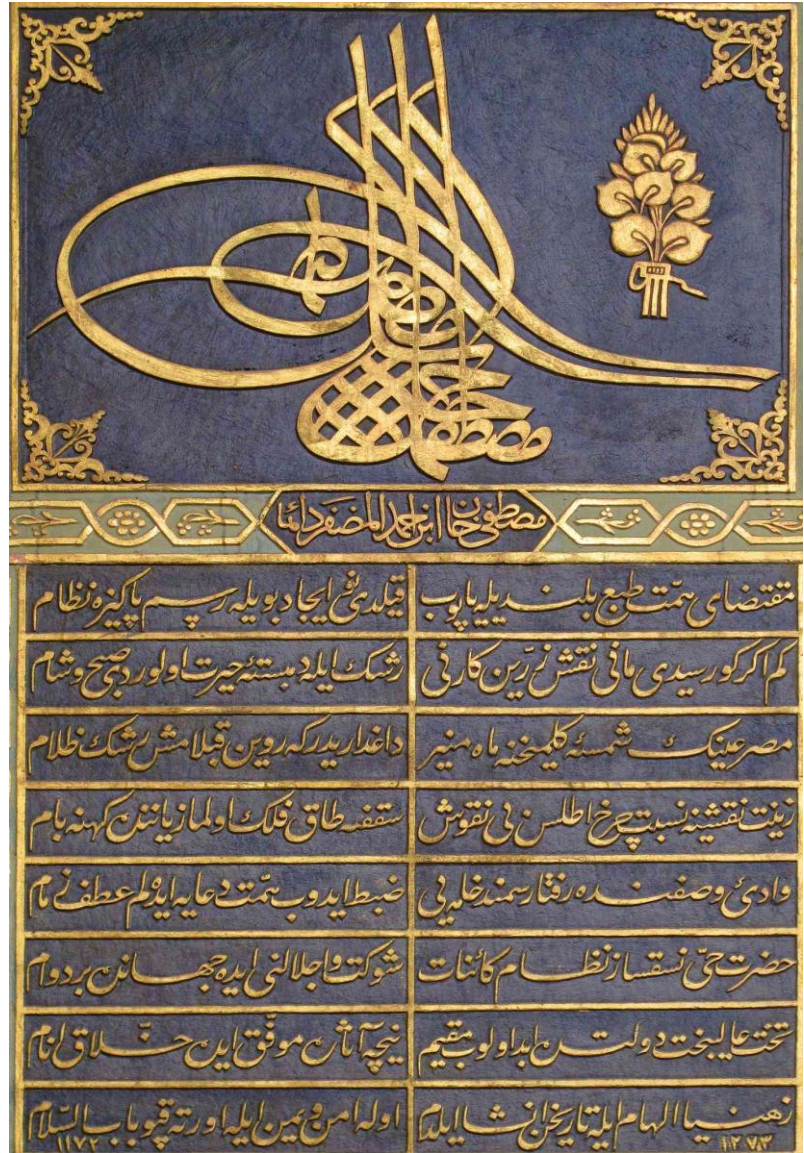 مصطفی خان ابن احمد المضفر دائما
مقتضای همّت طبع بلندیله یاپوب قیلدی ایجاد بویله رسم پاکیزه نظام
کم اکر کورسیدی مانی نقش زرّین کارنی رشک ایله دمبستهٔ حیرت اولوردی صبح و شام
مصرعینک شمسهٔ کلمیخنه ماه منیر داغداریدرکه روین قبلامش رشک ظلام
زینت نقشینه نسبت چرخ اطلس بی نقوش سقف طاق فلک اولماز یاننده کهنه بام
وادئ وصفنده رفتار سمند خامه یی ضبط ایدوب همّت دعایه ایده لم عطف زمام
حضرت حق نسقساز نظام کائنات شوکت و اجلالنی ایده جهانده بردوام
تخت عالیبخت دولتده ابد اولوب مقیم نیچه آثاره موفّق ایده خلّاق انام
زهنیا الهام ایله تاریخن انشا ایلدم اوله امن و یمن ایله اورته قپو باب السّلام
١٢٧٣ ١١٧٢